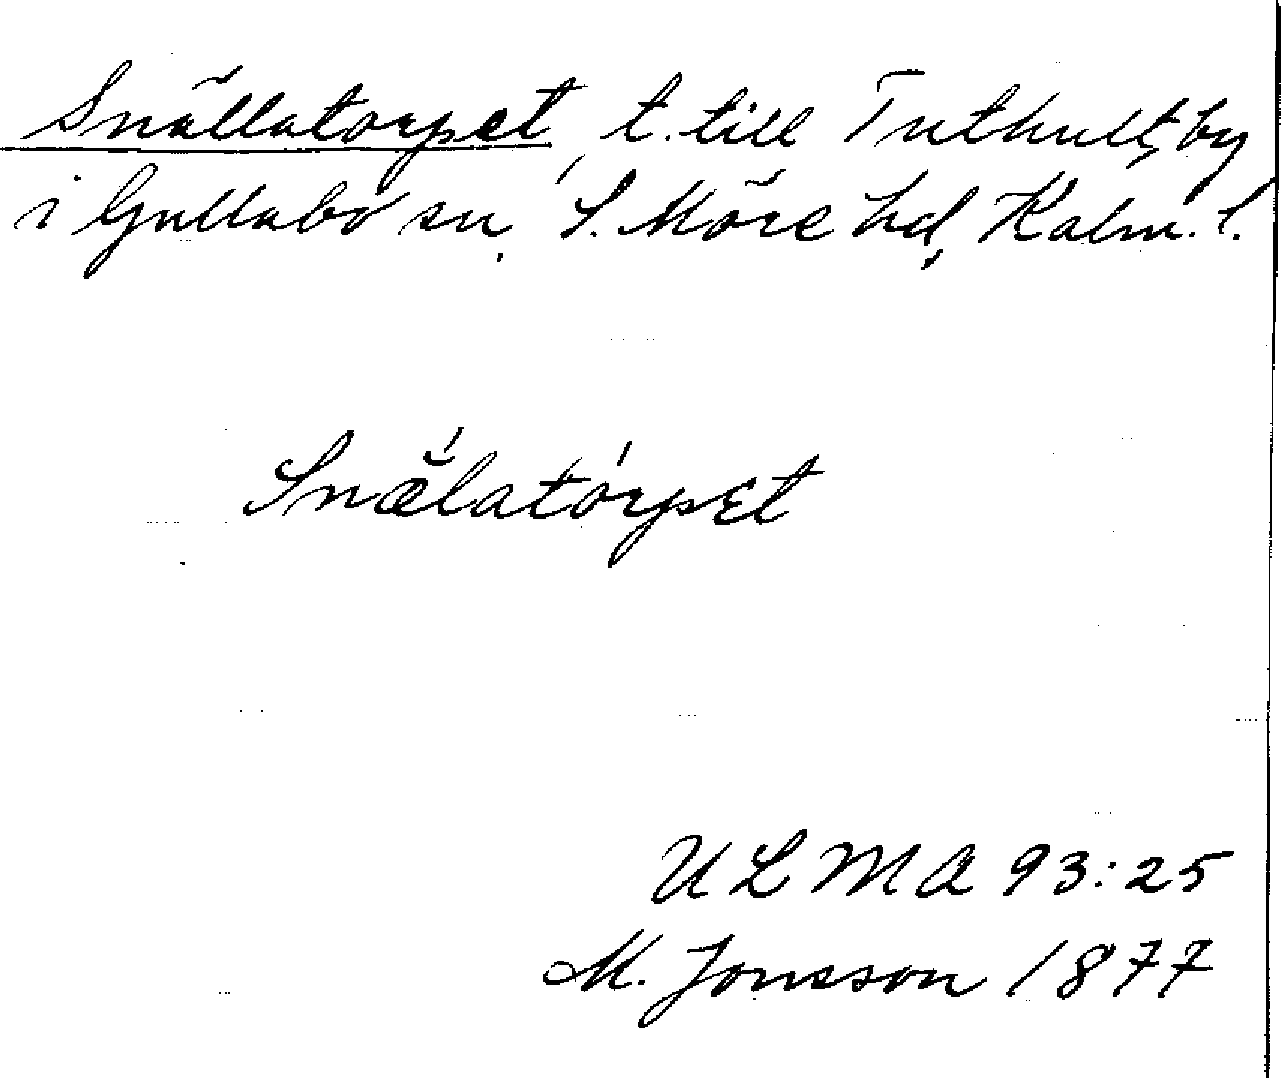 Snällatorpet, t. till Tuthult, by
i Gullabo sn, S. Möre hd, Kalm. l.
Snælatórpɛt
ULMA 93:25
M. Jonsson 1877